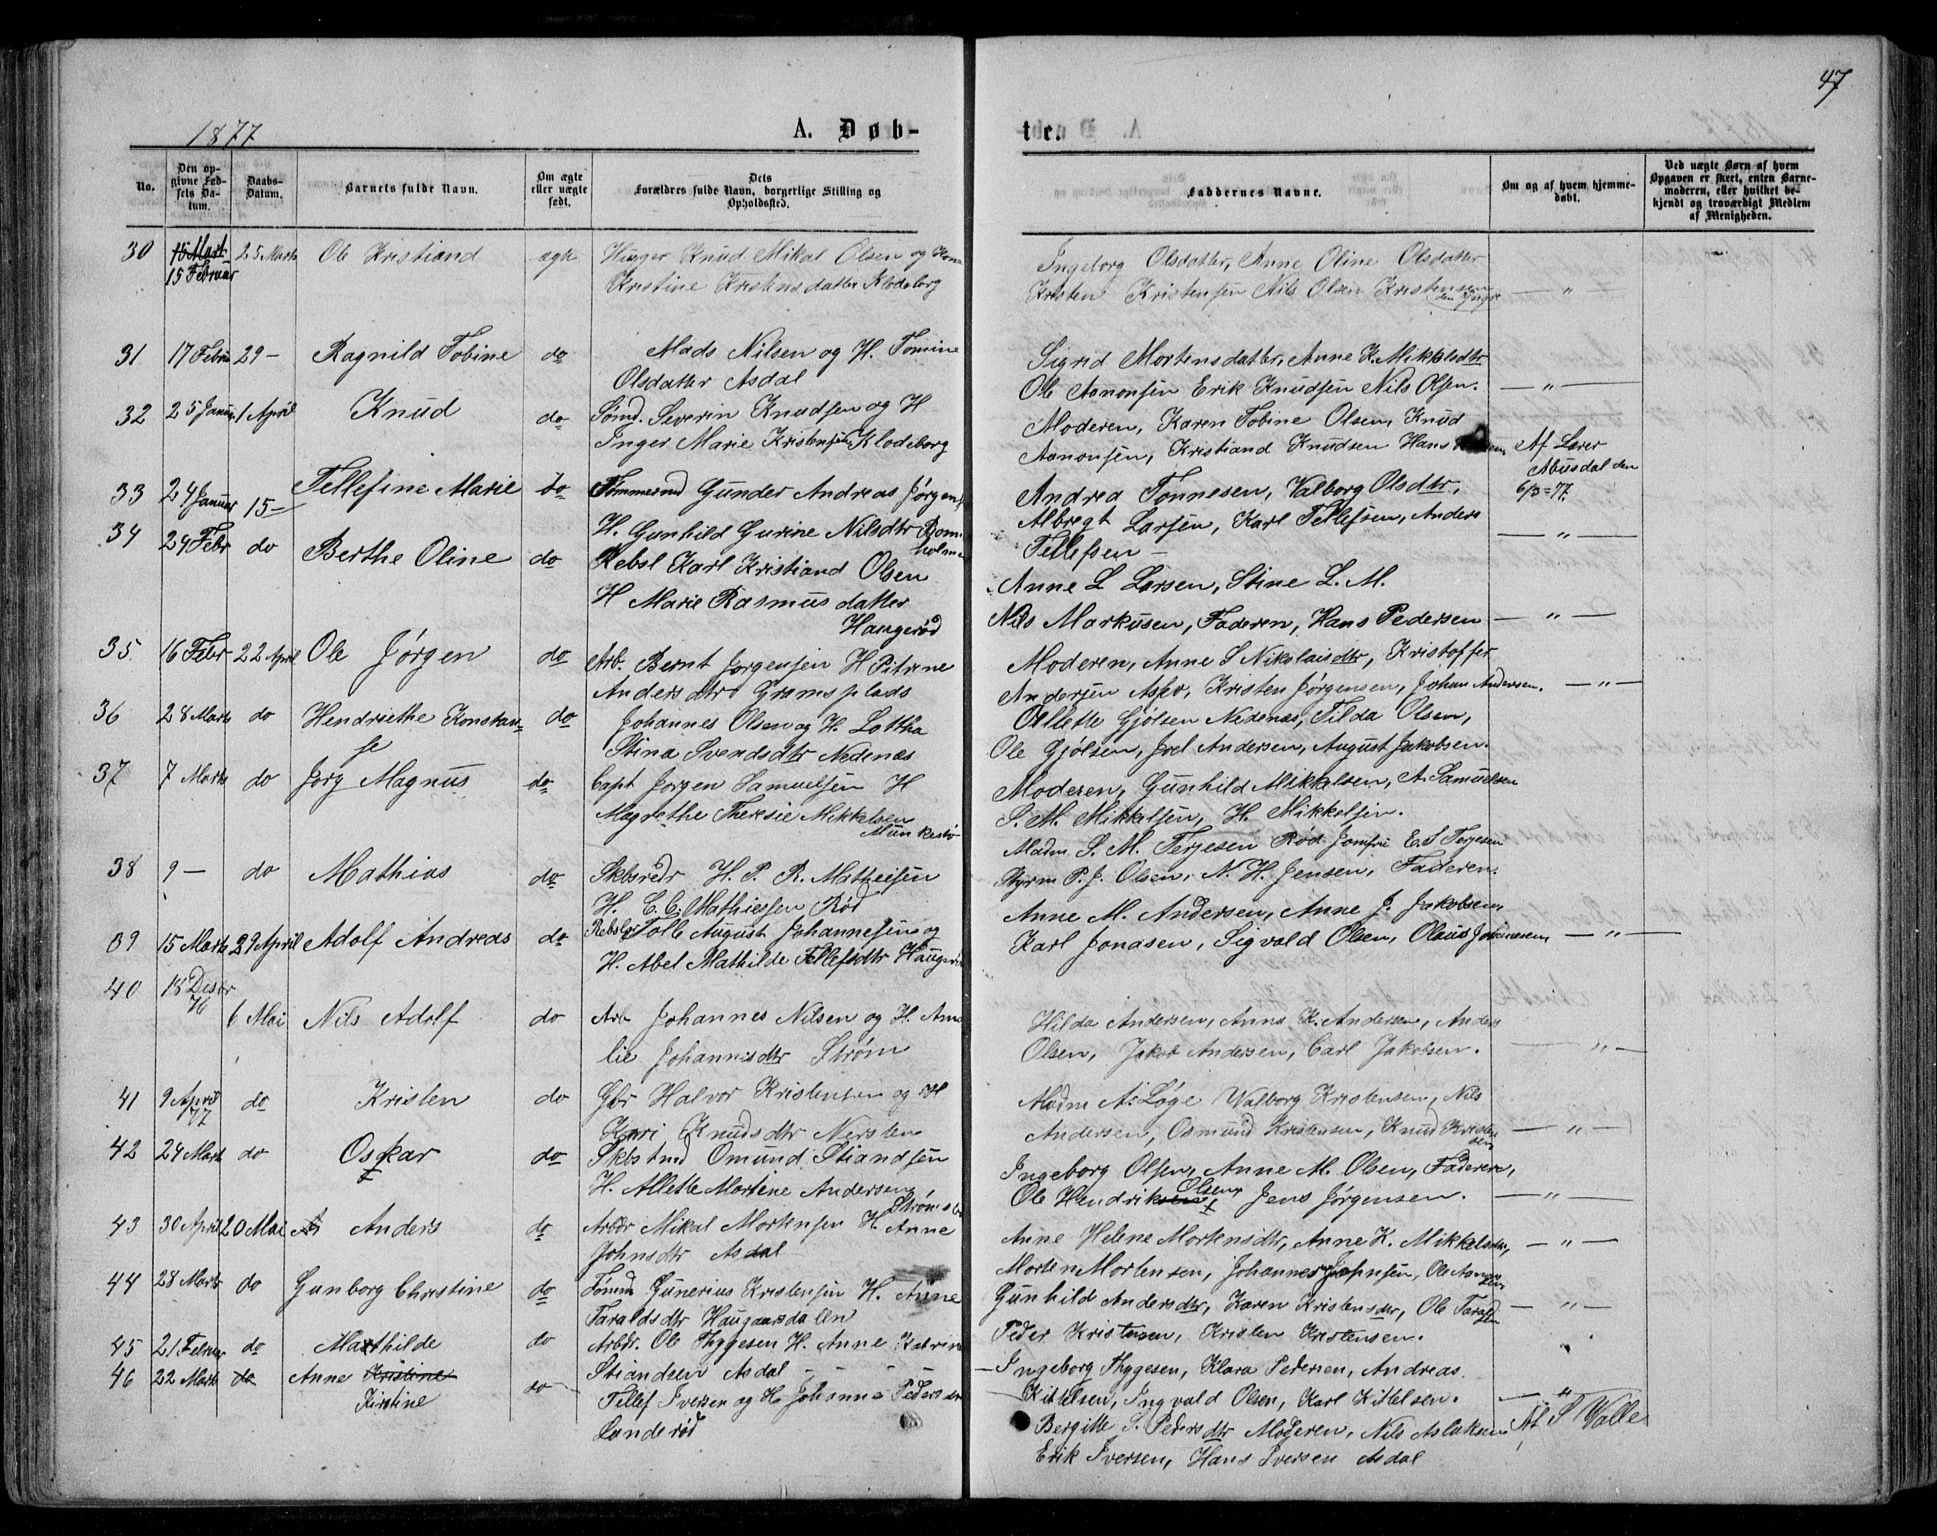 47
1877
A. Døb-
te.
No.
Den op-
givne Fød-
sels Da-
tum.
Daabs-
Datum.
Barnets fulde Navn.
Om ægte
eller uægte
født.
Dets
Forældres fulde Navn, borgerlige Stilling og
Opholdssted.
Faddernes Navne.
Om og af hvem hjemme-
døbt.
Ved uægte Børn af hvem
Opgaven er skeet, enten Barne-
moderen, eller hvilket be-
kjendt og troværdigt Medlem
af Menigheden.
30 15 Mart 25 Marts Ole Kristiand ægte Knud Mikal Olsen og Kone
15 Februar Kristine Kristensdatter Klodeborg
Ingeborg Olsdatter, Anne Oline Olsdatter
Kristen Kristensen Nils Olsen Kristensen — " —
31 17 Febru 29 — Ragnild Tobine do Mads Nilsen og H. Tomine
Olsdatter Asdal
Sigrid Mortensdatter, Anne K. Mikkelsdtr
Ole Aanonsen Erik Knudsen Nils Olsen. — " —
32 25 Januar 1 April Knud do Sømd. Severin Knudsen og H
Inger Marie Kristensdtr Klodeborg
Moderen, Karen Tobine Olsen, Knud
Aanonsen, Kristiand Knudsen Hans
Af Lærer
Abusdal den
6/3=77.
33 24 Januar 15 — Tellefine Marie do Tømmermd Gunder Andreas Jørgens
H. Gunhild Gurine Nilsdtr Bom
holmen
Andrea Tønnesen, Valborg Olsdtr,
Albregt Larsen, Karl Tellefsen, Anders
Tellefsen — — " —
34 24 Febr do Berthe Oline do Rebsl Karl Kristiand Olsen
H Marie Rasmusdatter
Haugerød
Anne L Larsen, Stine L. M.
Nils Markusen, Faderen, Hans Pedersen — " —
35 16 Febr 22 April Ole Jørgen do Arb. Bernt Jørgensen H Pitrine
Andersdtr Gramsplads
Moderen, Anne S Nikolaisdtr, Kristoffer
Andersen Aspø, Kristen Jørgensen, Johan Andersen. — " —
36 28 Marts do Hendriethe Konstan- do Johannes Olsen og H. Lottha
se Stina Svendsdtr Nedenæs
Oellette Gjølsen Nedenæs, Tilda Olsen,
Ole Gjølsen, Joel Andersen, August Jakobsen.
37 7 Marts do Jørg Magnus do Capt Jørgen Samuelsen H
Magrethe Theresie Mikkelsen
Munkesbø
Moderen, Gunhild Mikkelsen, A. Samuelsen
S. M. Mikkelsen, H. Mikkelsen.
38 9 — do Mathias do Skbsredr H. P. R. Mathiesen
H. C. C. Mathiesen Rød
Madm S. M. Terjesen Rød Jomfru E. S Terjesen
Styrm P. J. Olsen, N. H. Jensen, Faderen.
39 15 Marts 29 April Adolf Andreas do Rebsl Tolle August Johannesen og
H. Abel Mathilde Tellefsdtr Haugerø
Anne M. Andersen, Anne J. Jakobsen,
Karl Jonasen, Sigvald Olsen, Olaus Johannesen, — " —
40 18 Desbr
76
6 Mai Nils Adolf do Arb Johannes Nilsen og H. Ama
lie Johannisdtr Strøm
Hilda Andersen, Anna K. Andersen, Anders
Olsen, Jakob Andersen, Carl Jakobsen. — " —
41 9 April
77 do Kristen do Gbr Halvor Kristensen og H
Kari Knudsdtr Nersten
Madm A. Løge Valborg Kristensen, Nils
Andersen, Osmund Kristensen, Knud Kristen
sen — " —
42 24 Marts do Oskar do Skbstmd Omund Stiandsen
H. Allette Martine Andersen
Strøms
Ingeborg Olsen, Anne M. Olsen, Faderen,
Ole Hendriksen Olsen, Jens Jørgensen. — " —
43 30 April 20 Mai Anders do Arbdr Mikal Mortensen H. Anne
Johnsdtr Asdal
Anne Helene Mortensdtr, Anne K. Mikkelsdtr, — " —
Morten Mortensen, Johannes Johnsen, Ole Aanon
sen
44 28 Marts do Gunborg Christine do Tømm Gunerius Kristensen H. Anne
Taraldsdtr Haugaasdalen
Gunhild Andersdtr, Karen Kristensdtr, Ole Tarald
sen — " —
Peder Kristensen, Kristen Kristensen.
45 21 Februar do Mathilde do Arbdr. Ole Thygesen H. Anne Katrine
Stiandsen Asdal — — — — —
Ingeborg Thygesen, Klara Pedersen, Andreas
Kittelsen, Ingvald Olsen, Karl Kittelsen. — " —
46 22 Marts do Anne Kristine do Tellef Iversen og H. Johanne Pedersen
Kirstine Landerød
Bergitte S. Pedersdtr Moderen, Nils Aslaksen Af S Valle
Erik Iversen, Hans Iversen Asdal